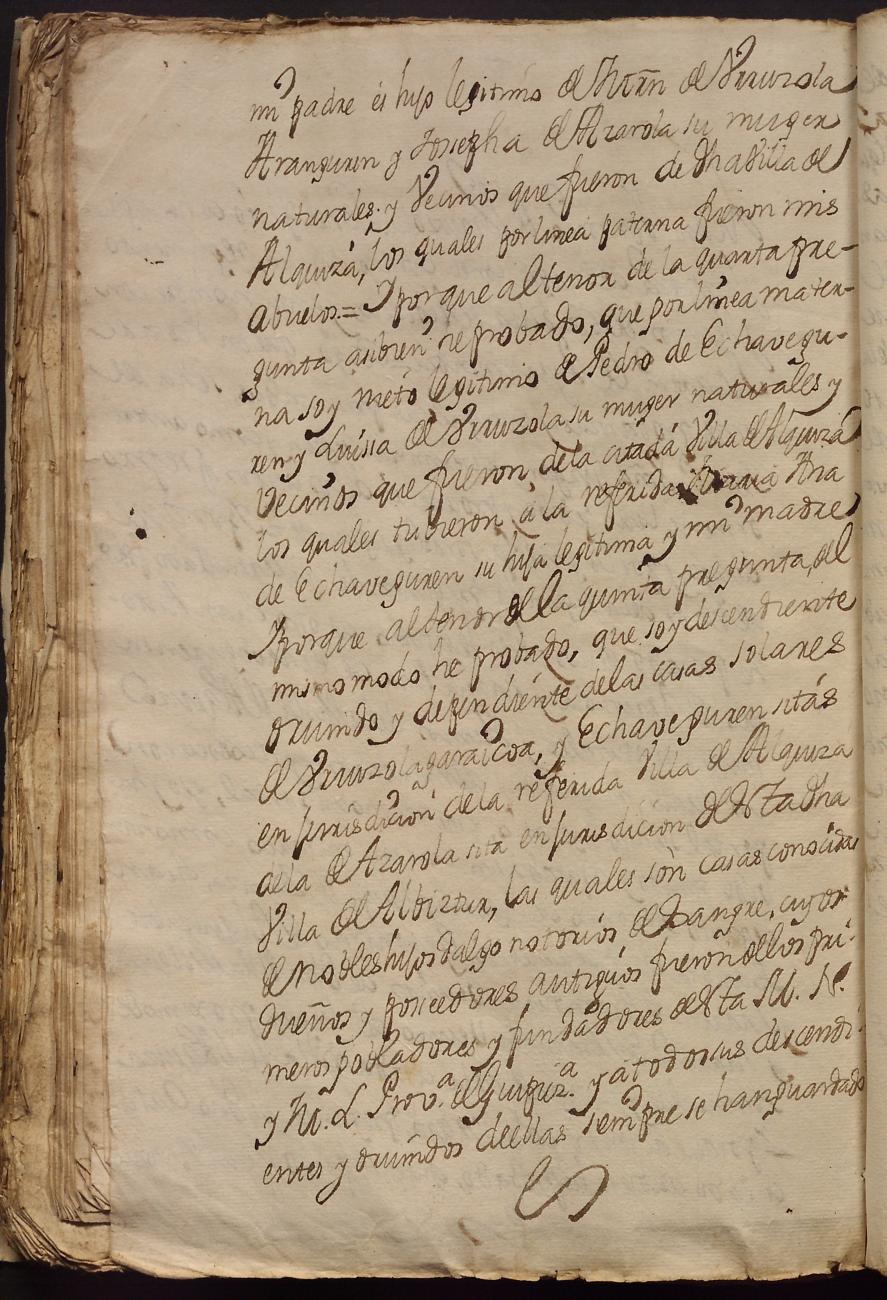 mi padre es hijo legitimo de Mrñ de Vrruzola
Aranguren y Josepha de Alzarola su muger
naturales y Vecinos que fueron de dha Villa de
Alquiza, los quales por linea paterna fueron mis
abuelos = Y porque al tenor de la quarta pre-
gunta asibien he probado, que por linea mater-
na soy nieto legitimo de Pedro de Echavegu-
ren y Luisa de Vrruzola su muger naturales y
Vecinos que fueron de la citada Villa de Alquiza
los quales tubieron a la referida Maria Ana
de Echaveguren su hija legitima y mi madre
Y porque al tenor de la quinta pregunta, del
mismo modo he probado, que soy descendiente
oriundo y dependiente de las casas solares
de Vrruzolagaraicoa, y Echaveguren sitas
en jurrisdicion de la referida Villa de Alquiza
de la de Azarola sita en jurisdicion de esta dha
Villa de Albiztur, las quales son casas conocidas
de Nobles hijosdalgo notorios de Sangre, cuyos
dueños y poseedores antiguos fueron de los pri-
meros pobladores y fundadores de esta M. N.
y M. L. Prov.ª de Guipuz.ª y a todos sus descendi-
entes y oriundos de ellas siempre se han guardado